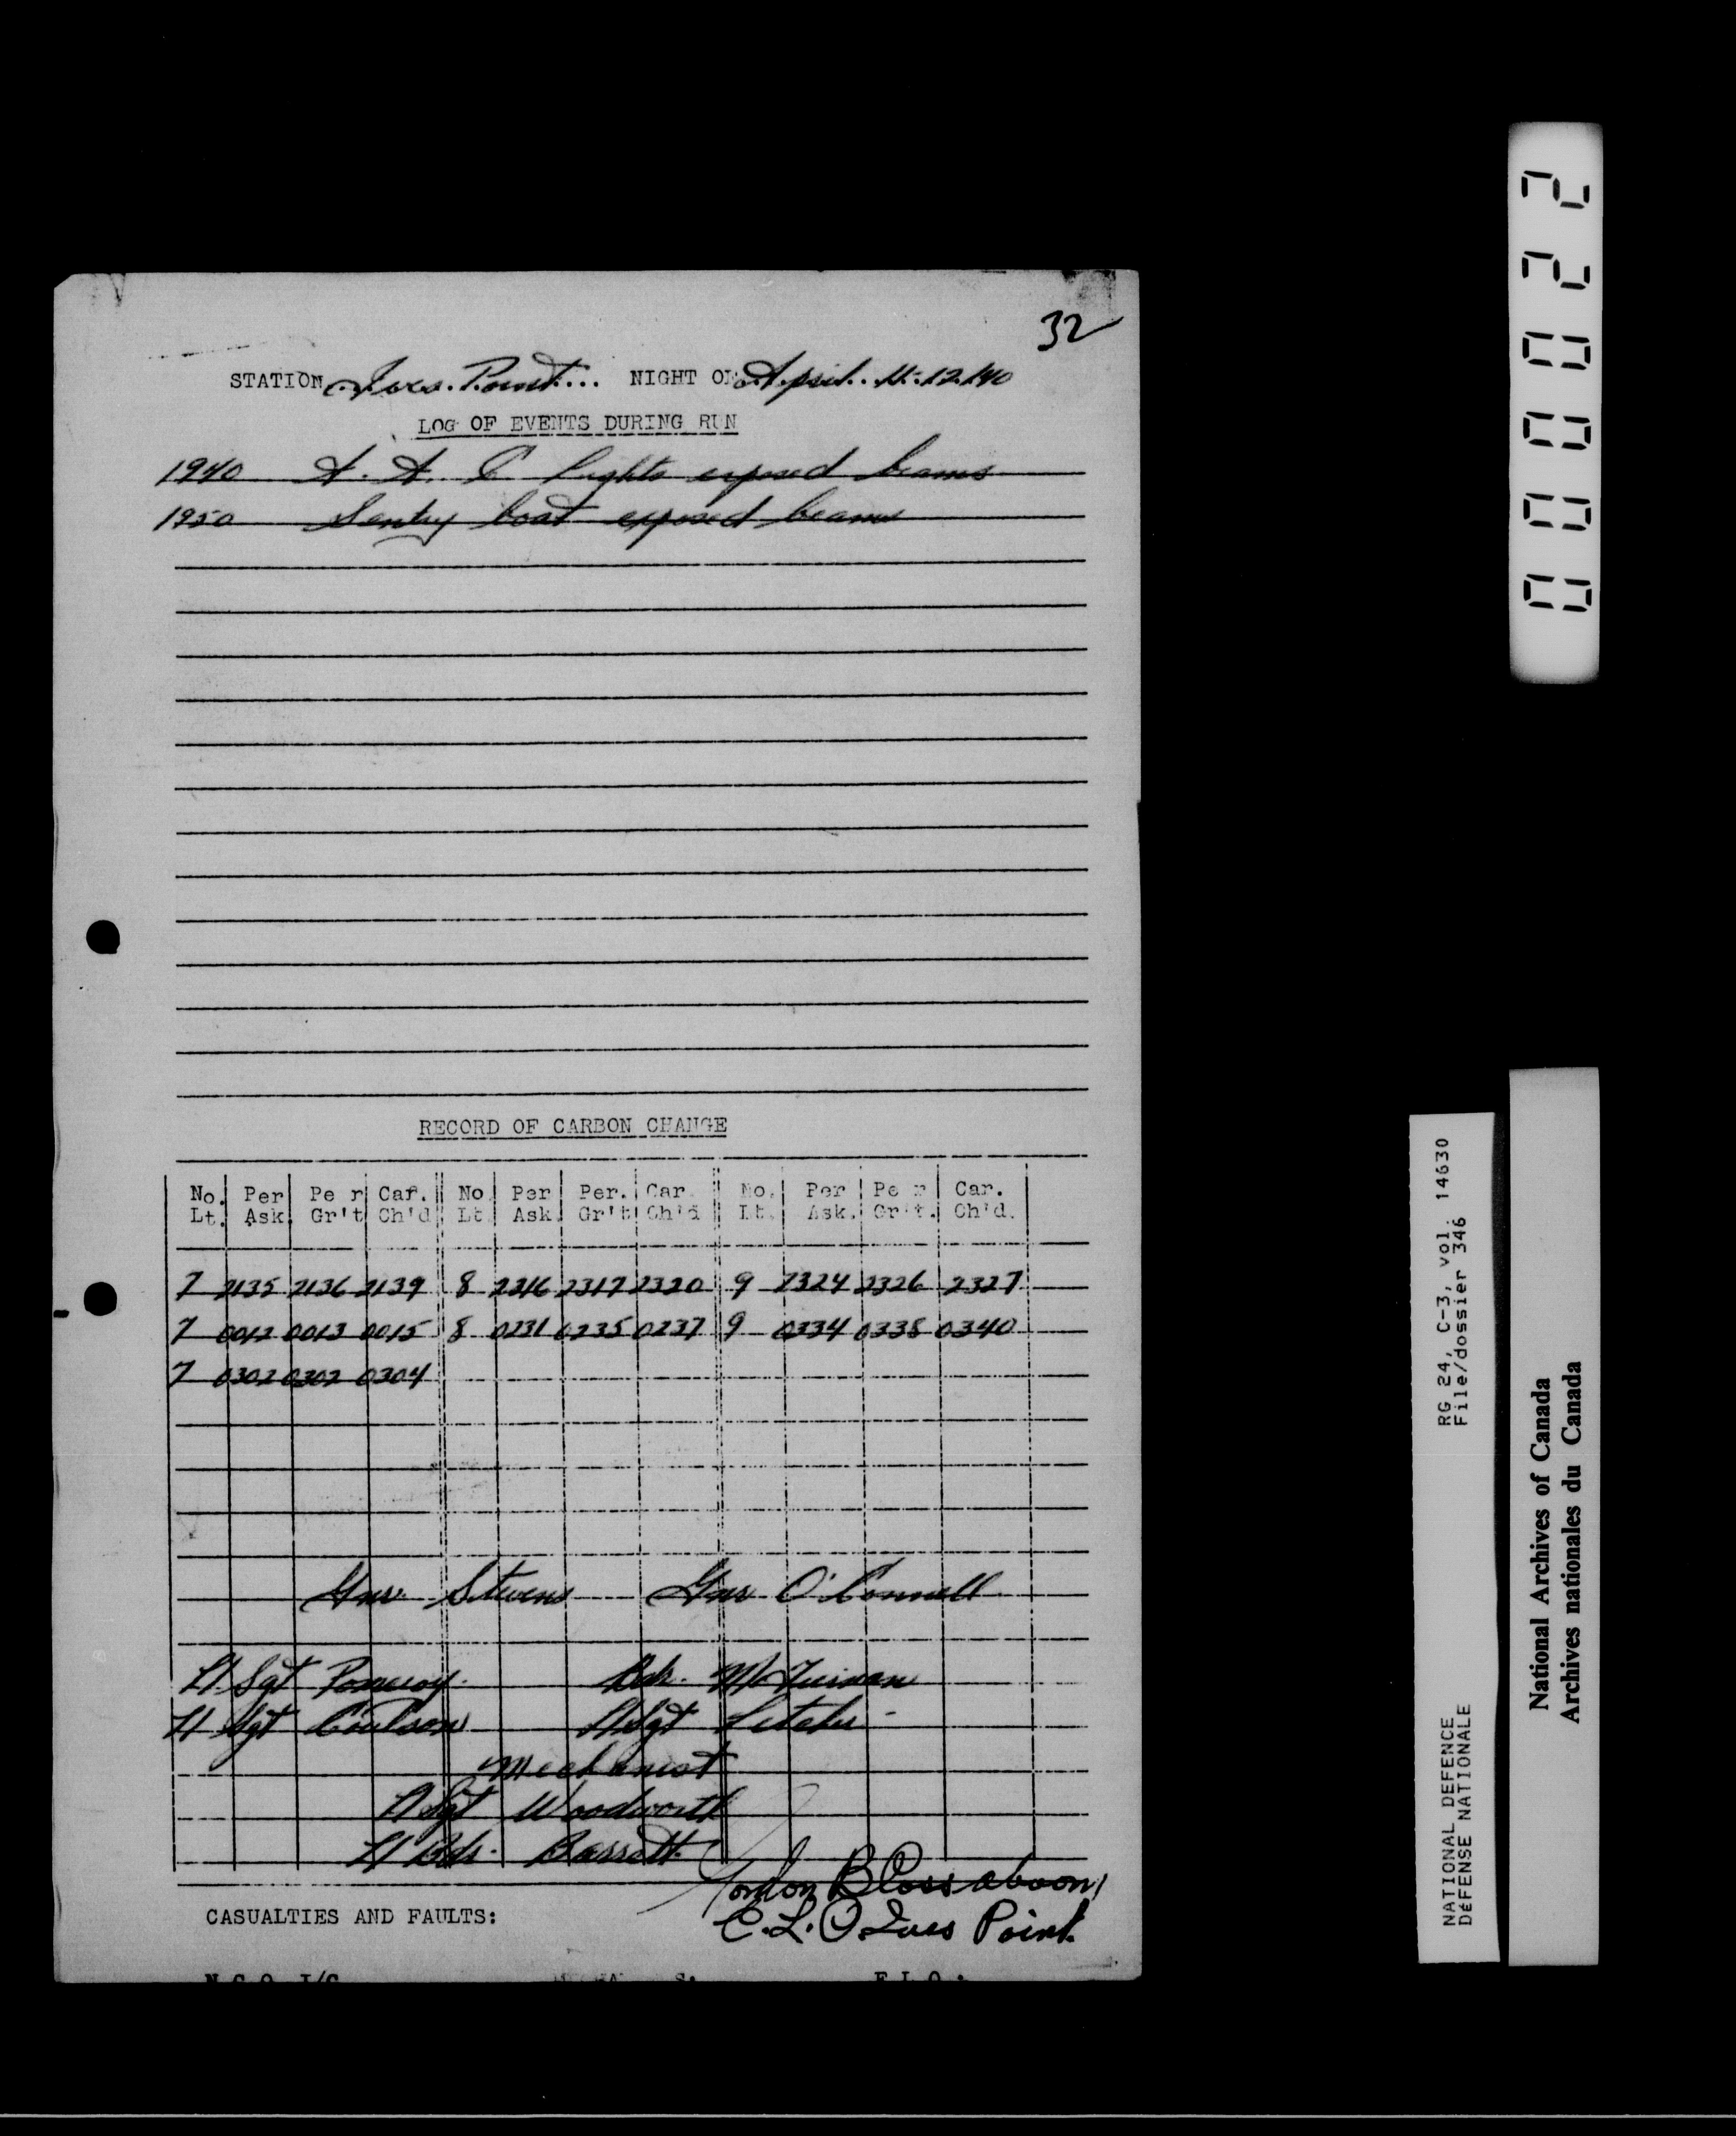 32
STATION Ives Point... NIGHT OF April 11-12/40
LOG OF EVENTS DURING RUN
1940 A. A. C lights exposed beams
1950 Sentry boat exposed beams
RECORD OF CARBON CHANGE
No. Per Pe r Car. No Per Per. Car. No. Per Pe r Car.
Lt. Ask Gr't Ch'd Lt. Ask. Gr't Ch'd Lt. Ask. Gr't. Ch'd.
7 2135 2136 2139 8 2316 2317 2320 9 2324 2326 2327
7 0012 0013 0015 8 0231 0235 0237 9 0334 0338 0340
7 0302 0302 0304
Gnr. Stevens Gnr O'Connell
L/Sgt Pomeroy. Bdr.
L/Sgt Coulson L/Sgt
Mechanist
L/Sgt Woodworth
L/Bdr. Barrett
Gordon B
CASUALTIES AND FAULTS:
E.L.O. Ives Point.
N.C.O. I/C E.L.O.:
0000022
RG 24, C-3, vol. 14630
File/dossier 346
NATIONAL DEFENCE
DÉFENSE NATIONALE
National Archives of Canada
Archives nationales du Canada